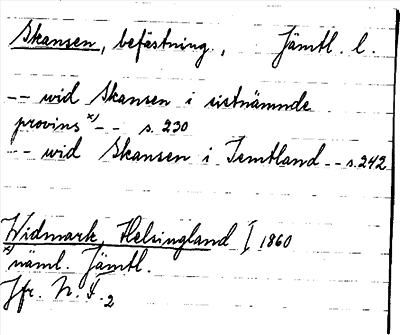 Skansen, befästning, Jämtl. l.
-- wid Skansen i sistnämnde
provins x) -- s. 230
-- wid Skansen i Jemtland -- s. 242
Widmark, Helsingland I 1860
x) näml. Jämtl.
Jfr. N. F. 2